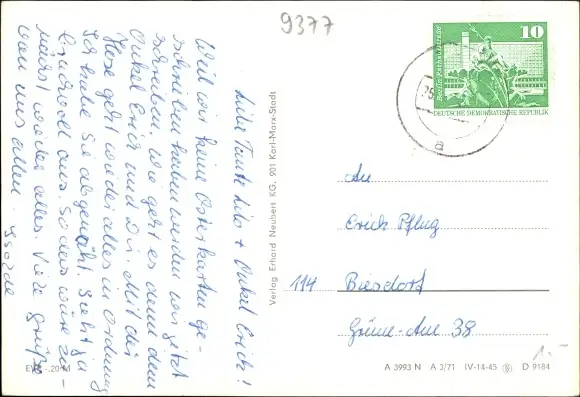 9377
10
Berlin, Rathausstraße
DEUTSCHE DEMOKRATISCHE REPUBLIK
25.
a
Liebe Tante Lilo + Onkel Erich!
Weil wir keine Osterkarten ge-
schrieben haben werden wir jetzt
schreiben. Wie geht es denn dem
Onkel Erich und Dir. Mit der
Hose geht wieder alles in Ordnung
Ich habe sie abgenäht. Sieht ja
komisch aus. So das wäre zu-
nächst wieder alles. Viele Grüße
von uns allen.
Verlag Erhard Neubert KG, 901 Karl-Marx-Stadt
An
Erich Pflug
114 Biesdorf
Grüne-Aue 38
1.-
EVP -,20 M
A 3993 N A 3/71 IV-14-45 D 9184